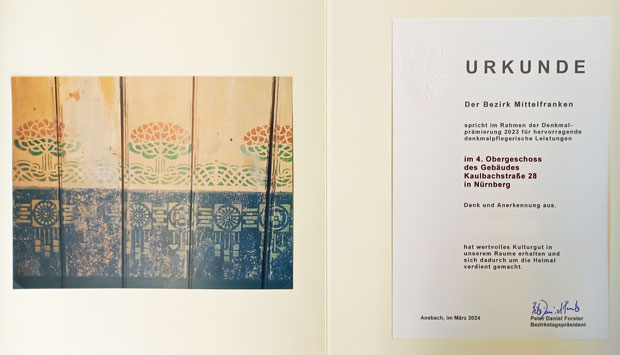 URKUNDE
Der Bezirk Mittelfranken
spricht im Rahmen der Denkmal-
prämierung 2023 für hervorragende
denkmalpflegerische Leistungen
im 4. Obergeschoss
des Gebäudes
Kaulbachstraße 28
in Nürnberg
Dank und Anerkennung aus.
hat wertvolles Kulturgut in
unserem Raume erhalten und
sich dadurch um die Heimat
verdient gemacht.
Ansbach, im März 2024
Peter Daniel Forster
Bezirkstagspräsident